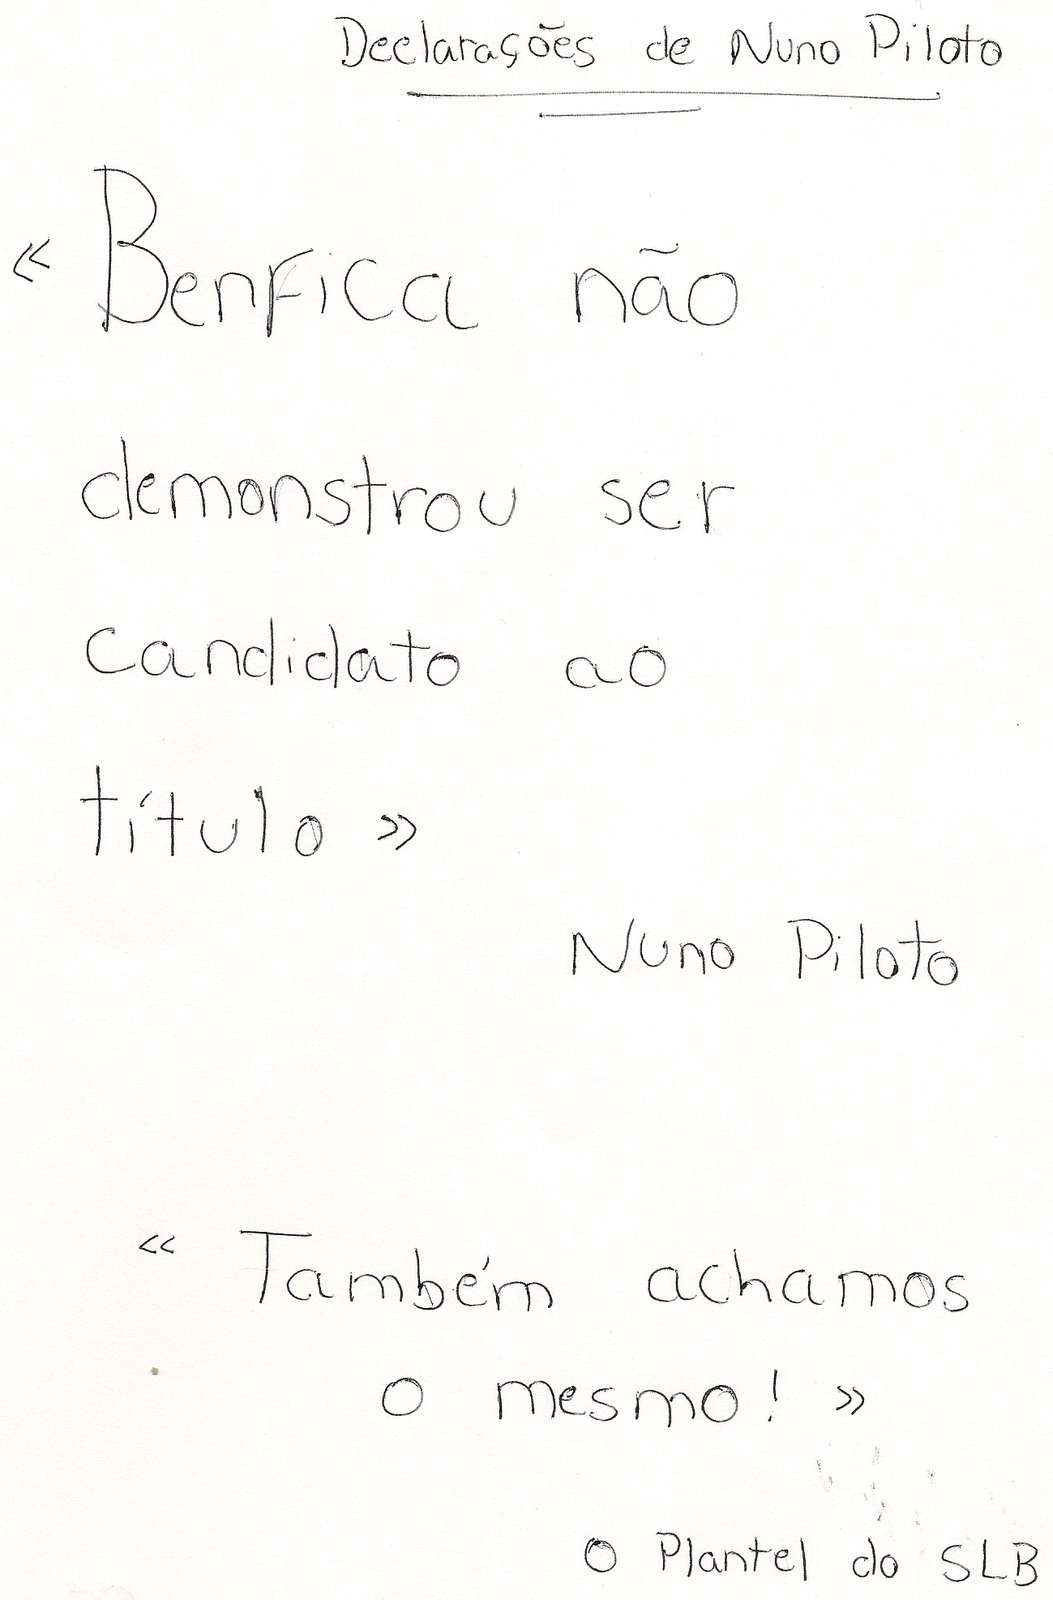 Declarações de Nuno Piloto
« Benfica não
demonstrou ser
candidato ao
título »
Nuno Piloto
« Também achamos
o mesmo! »
O Plantel do SLB